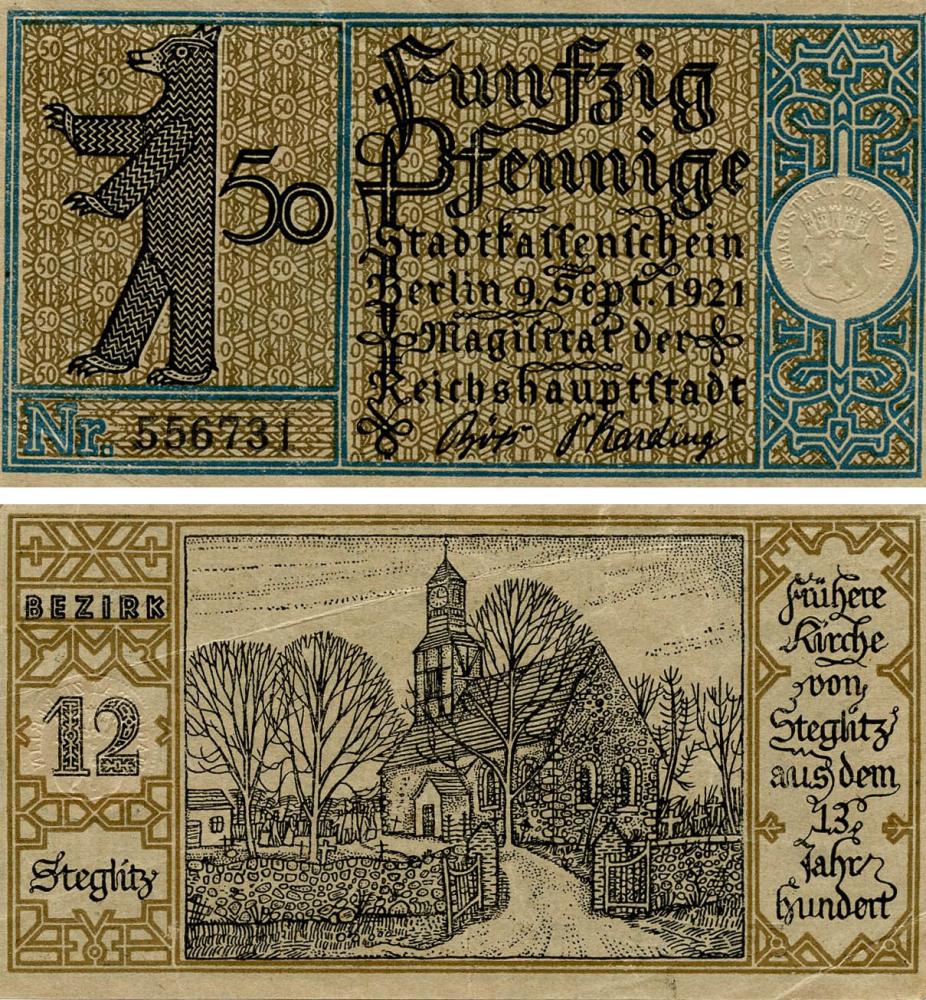 50
Funfzig
Pfennige
Stadtkassenschein
Berlin 9. Sept. 1921
Magistrat der
Reichshauptstadt
Nr. 556731
MAGISTRAT ZU BERLIN
BEZIRK
12
Steglitz
Frühere
Kirche
von
Steglitz
aus dem
13.
Jahr-
hundert